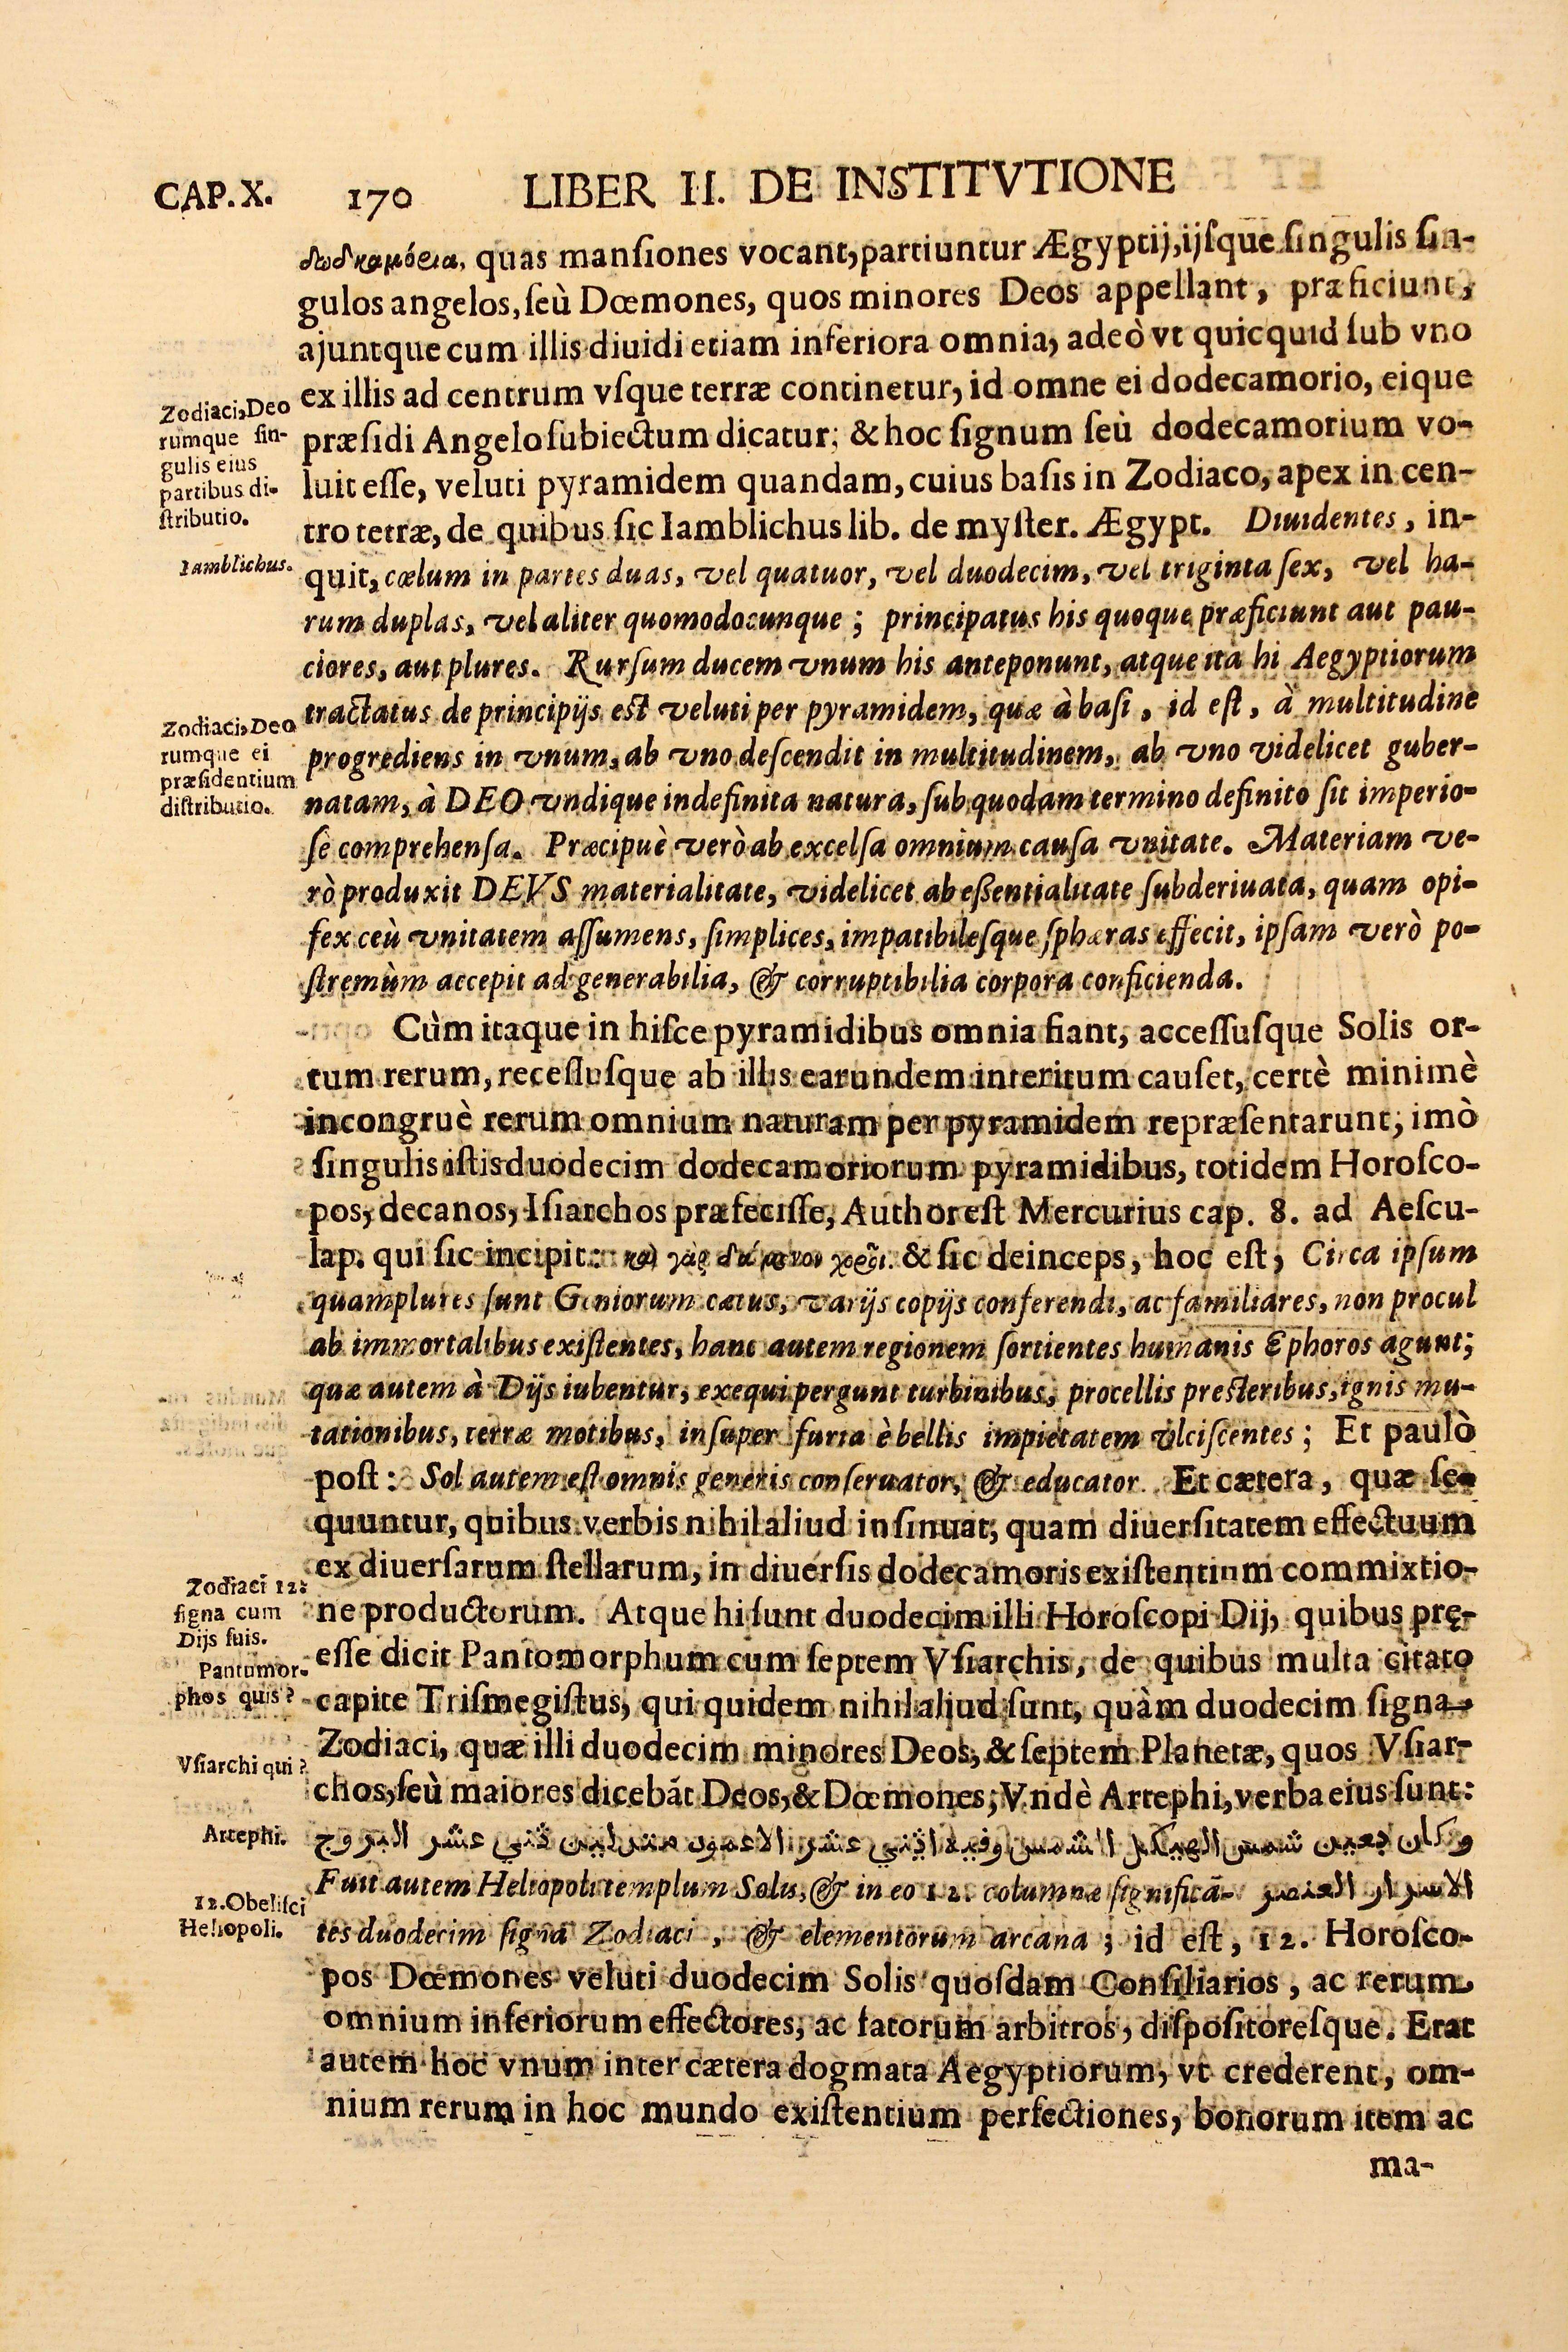 CAP. X. 170 LIBER II. DE INSTITVTIONE
quas mansiones vocant, partiuntur Ægyptij, ijſque ſingulis ſin-
gulos angelos, ſeù Dœmones, quos minores Deos appellant, præficiunt,
ajuntque cum illis diuidi etiam inferiora omnia, adeò vt quicquid ſub vno
ex illis ad centrum vſque terræ continetur, id omne ei dodecamorio, eique
præſidi Angelo ſubiectum dicatur; & hoc ſignum ſeù dodecamorium vo-
luit eſſe, veluti pyramidem quandam, cuius baſis in Zodiaco, apex in cen-
tro terræ, de quibus ſic Iamblichus lib. de myſter. Ægypt. Diuidentes, in-
quit, cœlum in partes duas, vel quatuor, vel duodecim, vel triginta ſex, vel ha-
rum duplas, vel aliter quomodocunque; principatus his quoque præficiunt aut pau-
ciores, aut plures. Rurſum ducem vnum his anteponunt, atque ita hi Aegyptiorum
tractatus de principijs est veluti per pyramidem, quæ à baſi, id eſt, à multitudine
progrediens in vnum, ab vno deſcendit in multitudinem, ab vno videlicet guber-
natam, à DEO vndique indefinita natura, ſub quodam termino definito ſit imperio-
ſe comprehenſa. Præcipuè verò ab excelſa omnium cauſa vnitate. Materiam ve-
rò produxit DEVS materialitate, videlicet ab eßentialitate ſubderiuata, quam opi-
fex ceù vnitatem aſſumens, ſimplices, impatibileſque ſphæras effecit, ipſam verò po-
ſtremùm accepit ad generabilia, & corruptibilia corpora conficienda.
Cùm itaque in hiſce pyramidibus omnia fiant, acceſſuſque Solis or-
tum rerum, receſſuſque ab illis earundem interitum cauſet, certè minimè
incongruè rerum omnium naturam per pyramidem repræſentarunt; imò
ſingulis iſtis duodecim dodecamoriorum pyramidibus, totidem Horoſco-
pos, decanos, Iſiarchos præfeciſſe, Author eſt Mercurius cap. 8. ad Aeſcu-
lap. qui ſic incipit: & ſic deinceps, hoc eſt, Circa ipſum
quamplures ſunt Geniorum cœtus, varijs copijs conferendi, ac familiares, non procul
ab immortalibus exiſtentes, hanc autem regionem ſortientes humanis Ephoros agunt;
quæ autem à Dijs iubentur, exequi pergunt turbinibus, procellis presteribus, ignis mu-
tationibus, terræ motibus, inſuper furia è bellis impietatem vlciſcentes; Et paulò
poſt: Sol autem eſt omnis generis conſeruator, & educator. Et cætera, quæ ſe-
quuntur, quibus verbis nihil aliud inſinuat, quam diuerſitatem effectuum
ex diuerſarum ſtellarum, in diuerſis dodecamoris exiſtentium commixtio-
ne productorum. Atque hi ſunt duodecim illi Horoſcopi Dij, quibus prę-
eſſe dicit Pantomorphum cum ſeptem Vſiarchis, de quibus multa citato
capite Triſmegiſtus, qui quidem nihil aliud ſunt, quàm duodecim ſigna
Zodiaci, quæ illi duodecim minores Deos, & ſeptem Planetæ, quos Vſiar-
chos, ſeù maiores dicebāt Deos, & Dœmones; Vndè Artephi, verba eius ſunt:
وكان بعين شمس الهيكل الشمس وفيه اثني عشر الاعمون عشر البروج
الاسرار العنصر
Fuit autem Heliopoli templum Solis, & in eo 12. columnæ ſignificā-
tes duodecim ſigna Zodiaci, & elementorum arcana; id eſt, 12. Horoſco-
pos Dœmones veluti duodecim Solis quoſdam Conſiliarios, ac rerum
omnium inferiorum effectores, ac fatorum arbitros, diſpoſitoreſque. Erat
autem hoc vnum inter cætera dogmata Aegyptiorum, vt crederent, om-
nium rerum in hoc mundo exiſtentium perfectiones, bonorum item ac
ma-
Zodiaci, Deo
rumque ſin-
gulis eius
partibus di-
ſtributio.
Iamblichus.
Zodiaci, Deo
rumque ei
præſidentium
diſtributio.
Zodiaci 12.
ſigna cum
Dijs ſuis.
Pantomor-
phos quis?
Vſiarchi qui?
Artephi.
12. Obeliſci
Heliopoli.